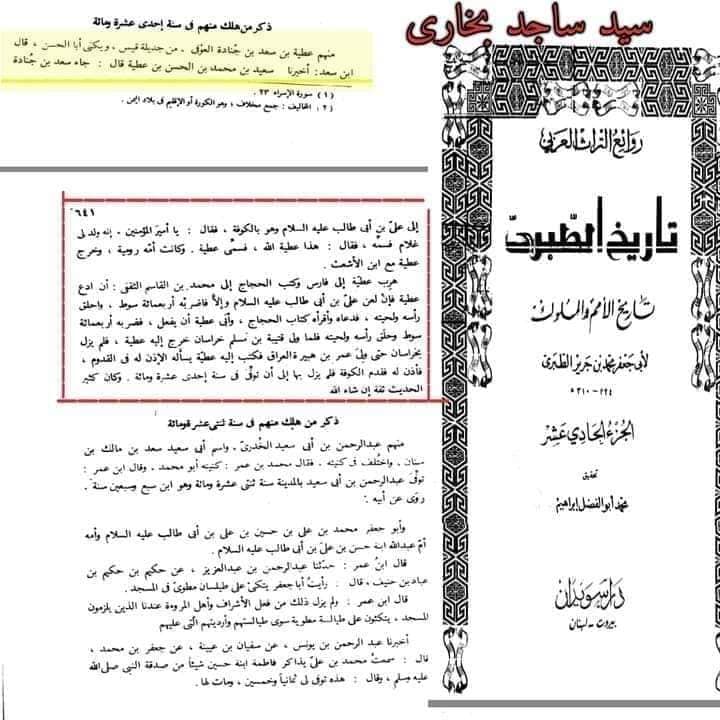 سید ساجد بخاری
ذكر من هلك منهم فى سنة إحدى عشرة ومائة
منهم عطية بن سعد بن جُنادة العوْفى . من جديلة قيس ، ويكنى أبا الحسن ، قال
ابن سعد : أخبرنا سعيد بن محمد بن الحسن بن عطية قال : جاء سعد بن جُنادة
( ١ ) سورة الإسراء ٢٣ .
( ٢ ) المخاليف : جمع مخلاف ، وهو الكورة أو الإقليم فى بلاد اليمن .
٦٤١
إلى علىّ بن أبى طالب عليه السلام وهو بالكوفة ، فقال : يا أميرَ المؤمنين . إنه ولد لى
غلام فسمِّه ، فقال : هذا عطية الله ، فسمِّى عطية . وكانت أمّه رومية ، وخرج
عطية مع ابن الأشعث .
هرب عطيّة إلى فارس وكتب الحجاج إلى محمد بن القاسم الثقفى : أن ادع
عطية فإن لعن علىّ بن أبى طالب عليه السلام وإلاّ فاضربْه أربعمائة سوط ، واحلق
رأسه ولحيته ، فدعاه وأقرأه كتاب الحجاج ، وأبى عطية أن يفعل ، فضربه أربعمائة
سوط وحلق رأسه ولحيته فلما ولى قتيبة بن مسلم خراسان خرج إليه عطية ، فلم يزل
بخراسان حتى ولى عمر بن هبيرة العراق فكتب إليه عطيّة يسأله الإذن له فى القدوم ،
فأذن له فقدم الكوفة فلم يزل بها إلى أن توفّى فى سنة إحدى عشرة ومائة . وكان كثير
الحديث ثقة إن شاء الله
ذكر من هلك منهم فى سنة ثنتى عشرة ومائة
منهم عبدالرحمن بن أبى سعيد الخُدرىّ . واسم أبى سعيد سعد بن مالك بن
سنان . واختلف فى كنيته . فقال محمد بن عمر : كنيته أبو محمد . وقال ابن عمر :
توفّى عبدالرحمن بن أبى سعيد بالمدينة سنة ثنتى عشرة ومائة وهو ابن سبع وسبعين سنة .
روى عن أبيه .
وأبو جعفر محمد بن على بن حسين بن على بن أبى طالب عليه السلام وأمه
أمّ عبدالله ابنة حسن بن علىّ بن أبى طالب عليه السلام .
قال ابنُ عمر : حدّثنا عبدالرحمن بن عبدالعزيز ، عن حكيم بن حكيم بن
عباد بن حنيف ، قال : رأيتُ أبا جعفر يتكئ على طيلسان مطوىّ فى المسجد .
قال ابن عمر : ولم يزل ذلك من فعل الأشراف وأهل المروءة عندنا الذين يلزمون
المسجد ، يتكئون على طيالسة مطوية سوى طيالستهم وأرديتهم الّتى عليهم
أخبرنا عبد الرحمن بن يونس ، عن سفيان بن عيينة ، عن جعفر بن محمد ،
قال : سمعتُ محمد بن علىّ يذاكر فاطمة ابنة حسين شيئاً من صدقة النبى صلى الله
عليه وسلم ، وقال : هذه توفى لى ثمانياً وخمسين ، ومات لها .
روائع التراث العربي
تاريخ الطبري
تاريخ الأمم والملوك
لأبي جعفر محمد بن جرير الطبري
٢٢٤ - ٣١٠ هـ
الجزء الحادي عشر
تحقيق
محمد أبو الفضل إبراهيم
دار سويدان
بيروت - لبنان